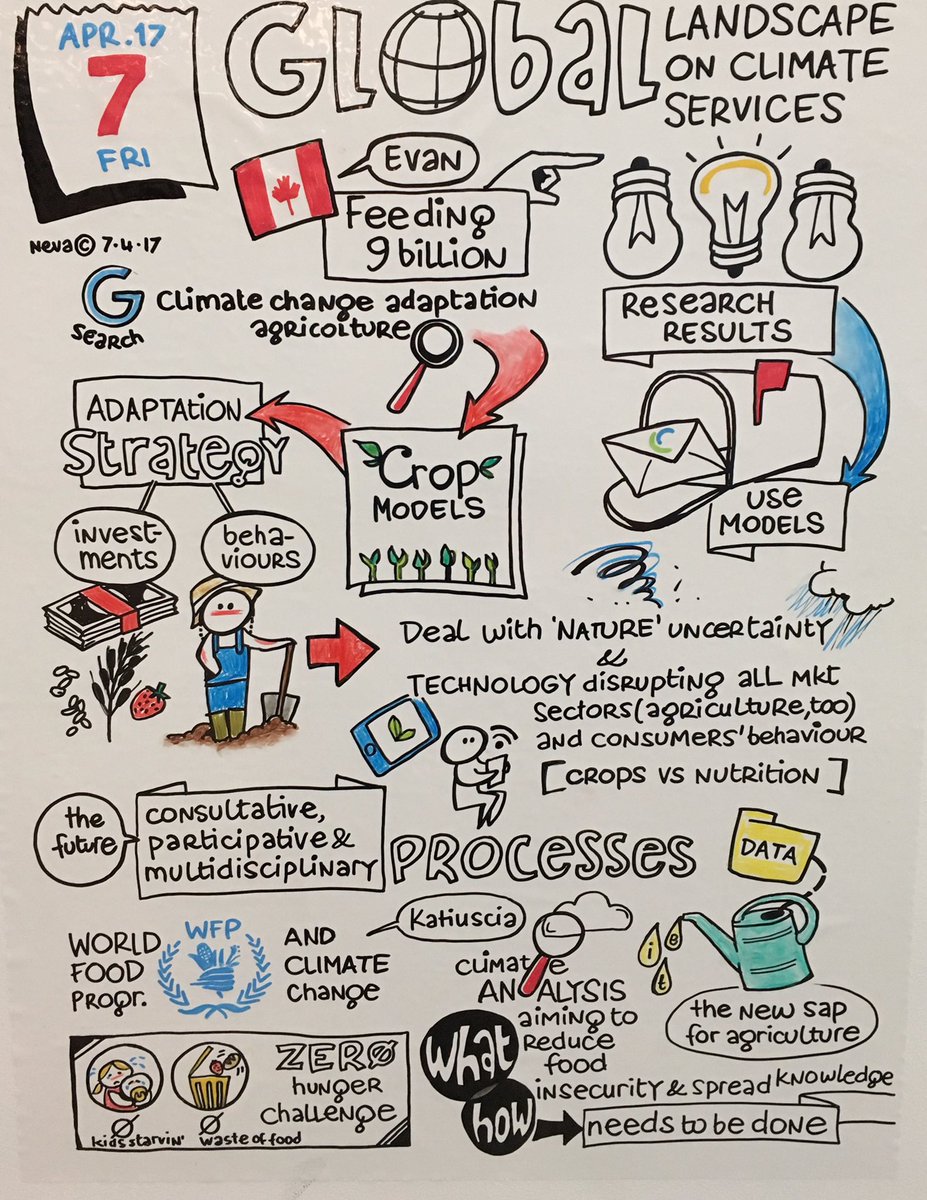 APR.17
7
FRI
GLObaL
LANDSCAPE
ON CLIMATE
SERVICES
Evan
Feeding
9 billion
Neva© 7.4.17
G
search
Climate change adaptation
agricolture
RESEARCH
RESULTS
ADAPTATION
Strategy
Crop
MODELS
USE
MODELS
invest-
ments
beha-
viours
Deal with 'NATURE' uncertainty
&
TECHNOLOGY disrupting all mkt
sectors (agriculture, too)
and consumers' behaviour
[CROPS VS NUTRITION]
the
future
consultative,
participative &
multidisciplinary
PROCESSES
DATA
Katiuscia
WORLD
FOOD
PROGR.
WFP
AND
CLIMATE
change
climate
ANALYSIS
aiming to
reduce
food
insecurity & spread knowledge
i
e
t
the new sap
for agriculture
what
how
needs to be done
ZERØ
hunger
challenge
Ø
kids starvin'
Ø
waste of food